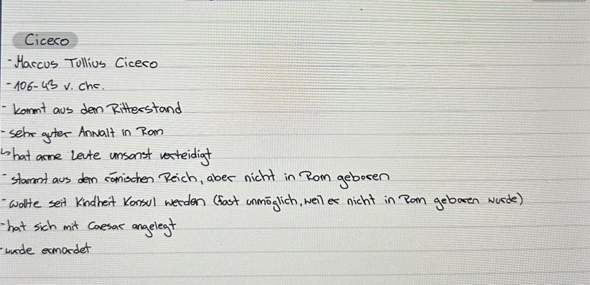 Cicero
- Marcus Tullius Cicero
- 106-43 v. Chr.
- kommt aus dem Ritterstand
- sehr guter Anwalt in Rom
↳ hat arme Leute umsonst verteidigt
- stammt aus dem römischen Reich, aber nicht in Rom geboren
- wollte seit Kindheit Konsul werden (fast unmöglich, weil er nicht in Rom geboren wurde)
- hat sich mit Caesar angelegt
- wurde ermordet